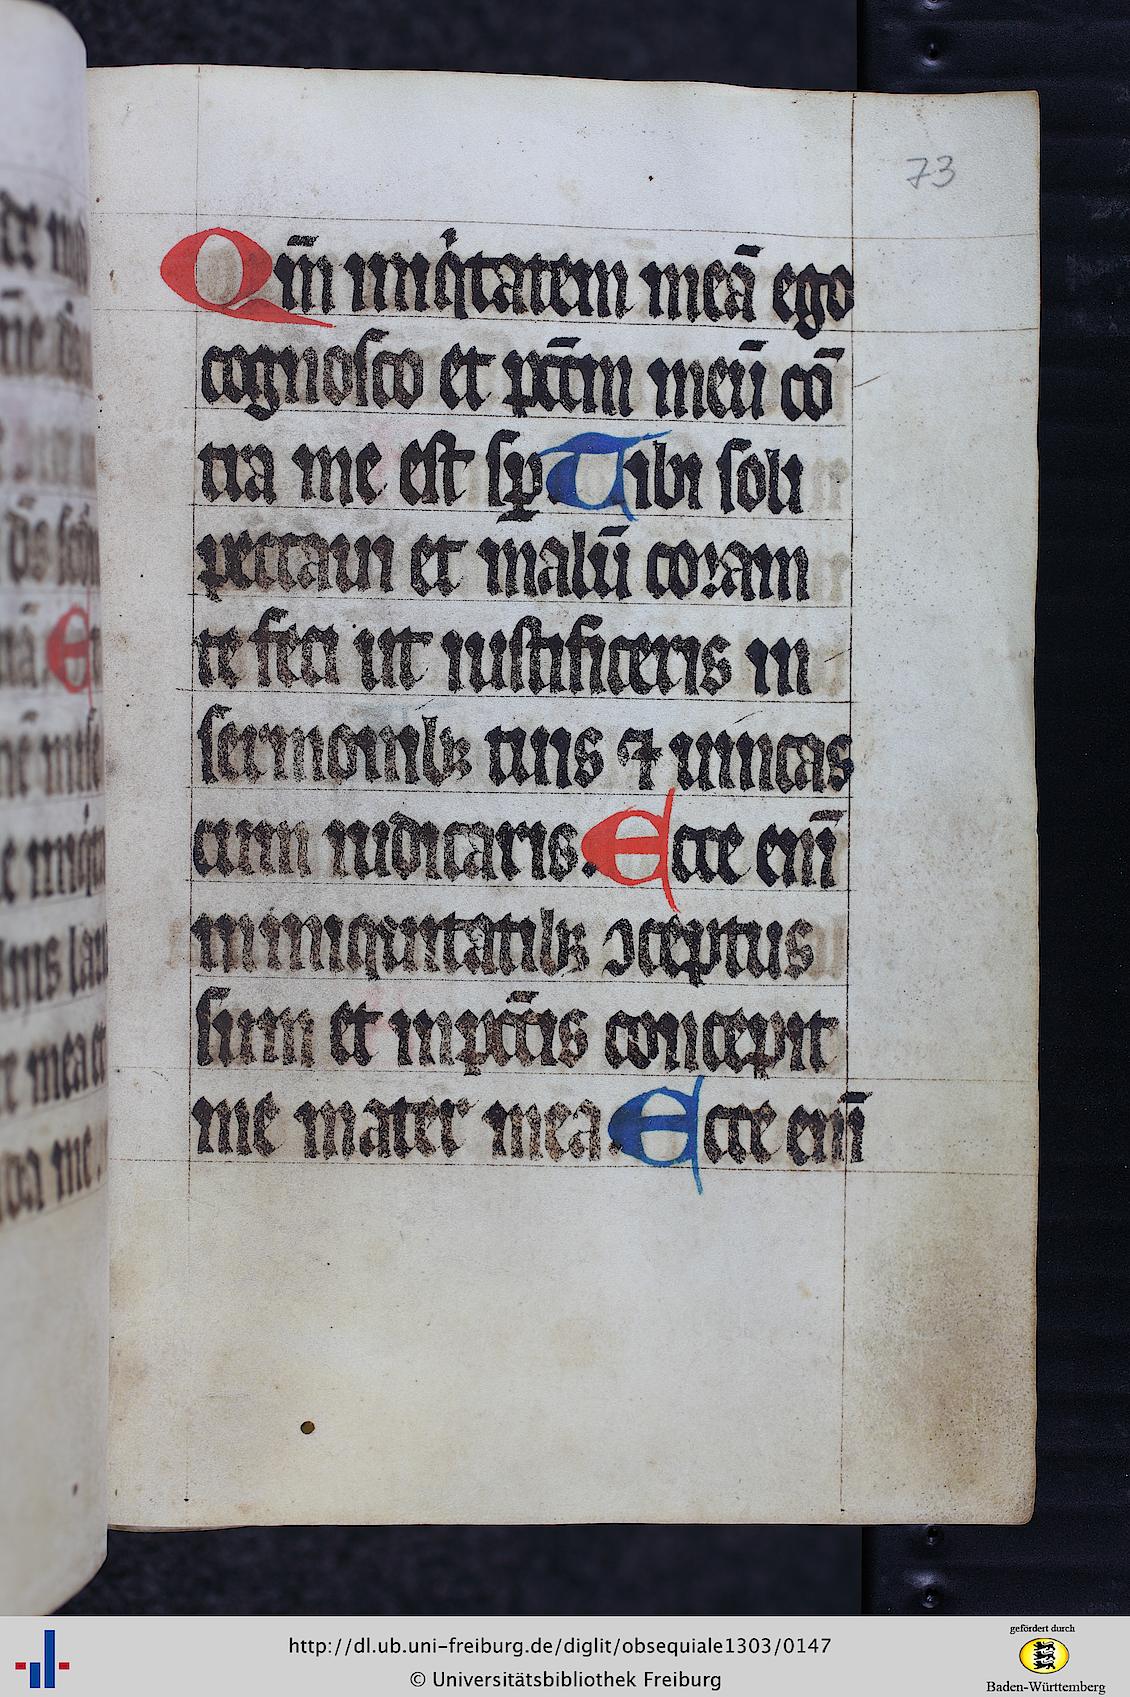 73
Qm̄ iniqͥtatem meā ego
cognosco et pc̄cm meū cō
tra me est sꝑ. Tibi soli
peccaui et malū coram
te feci ut iustificeris in
sermonibꝫ tuis ⁊ uincas
cum iudicaris. Ecce eni̅
in iniquitatibꝫ ꝯceptus
sum et in pcc̄is concepit
me mater mea. Ecce eni̅
http://dl.ub.uni-freiburg.de/diglit/obsequiale1303/0147
© Universitätsbibliothek Freiburg
gefördert durch
Baden-Württemberg